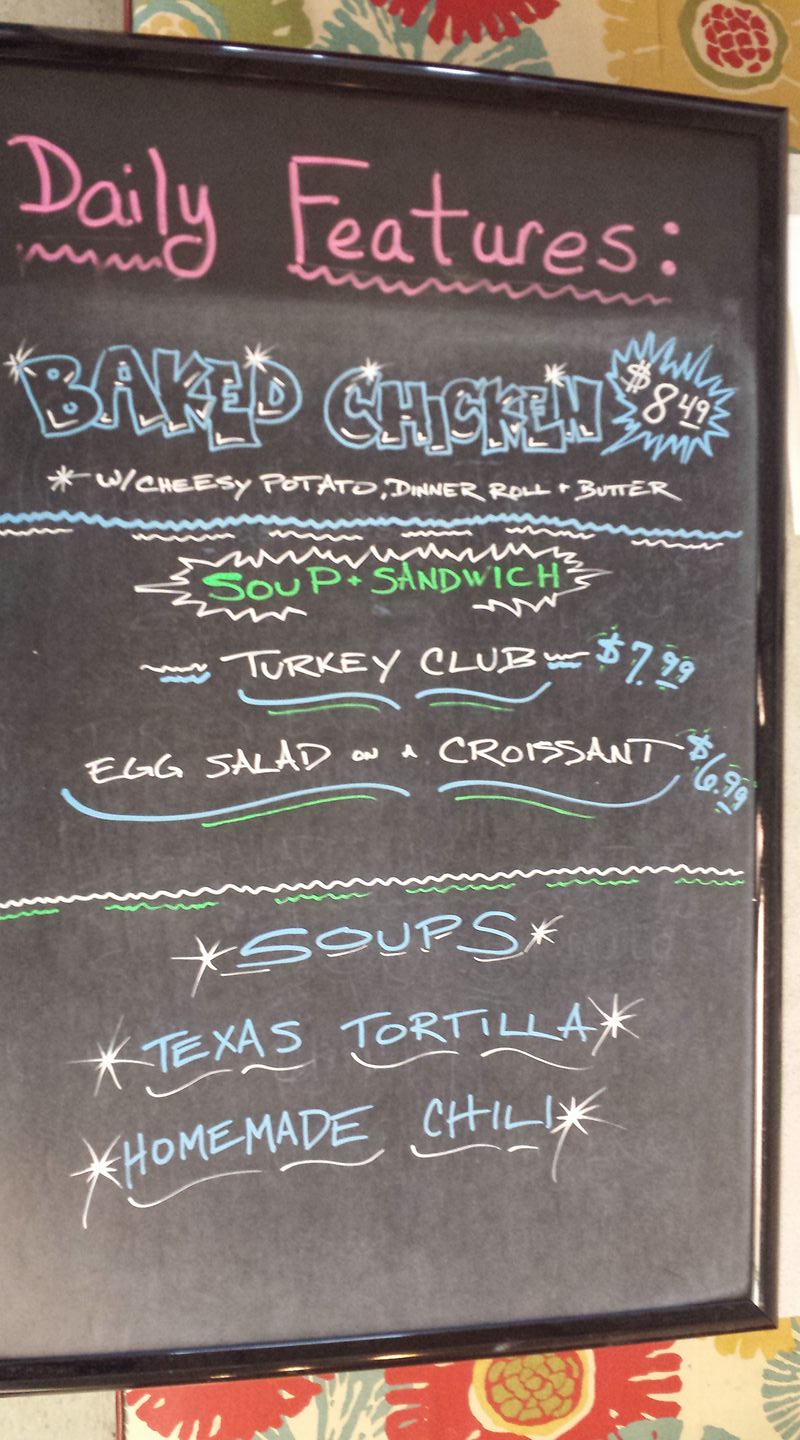 Daily Features:
BAKED CHICKEN $8.49
* W/CHEESY POTATO, DINNER ROLL + BUTTER
SOUP + SANDWICH
TURKEY CLUB $7.99
EGG SALAD ON A CROISSANT $6.99
SOUPS
TEXAS TORTILLA
HOMEMADE CHILI